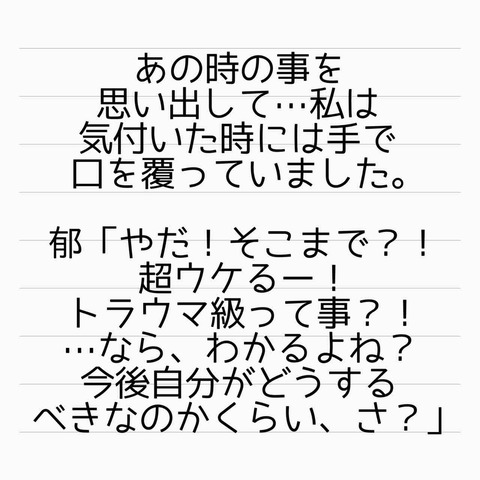 あの時の事を
思い出して…私は
気付いた時には手で
口を覆っていました。
郁「やだ！そこまで？！
超ウケるー！
トラウマ級って事？！
…なら、わかるよね？
今後自分がどうする
べきなのかくらい、さ？」